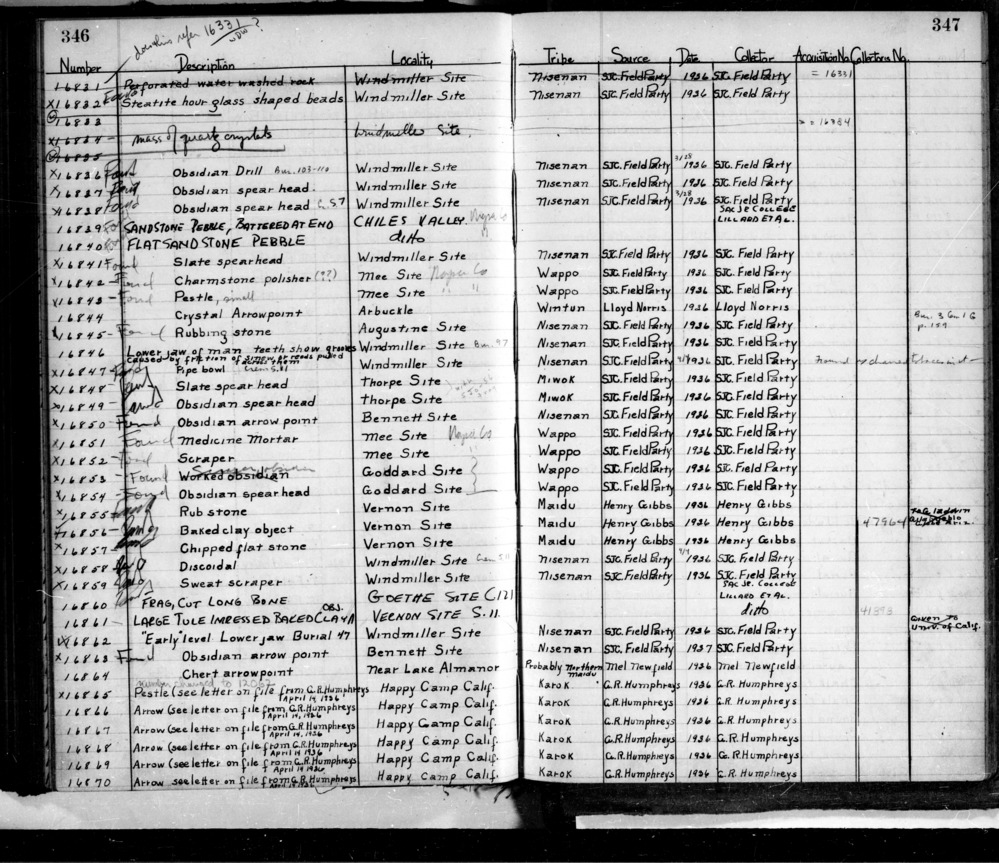 346
347
does this refer 16331 ?
Number Description Locality Tribe Source Date Collector Acquisition No. Collectors No.
16831 Perforated water washed rock Windmiller Site Nisenan SJC. Field Party 1936 SJC. Field Party = 16331
X16832 Found Steatite hour glass shaped beads Windmiller Site Nisenan SJC. Field Party 1936 SJC. Field Party
16833
X16834 mass of quartz crystals Windmiller Site. = 16384
16835
X16836 Found Obsidian Drill Bur. 103-110 Windmiller Site Nisenan SJC. Field Party 3/28 1936 SJC. Field Party
X16837 Found Obsidian spear head. Windmiller Site Nisenan SJC. Field Party 1936 SJC. Field Party
X16838 Found Obsidian spear head Windmiller Site Nisenan SJC. Field Party 3/28 1936 SJC. Field Party
16839 SANDSTONE PEBBLE, BATTERED AT END CHILES VALLEY Napa Co SAC JR COLLEGE LILLARD ET AL.
16840 FLAT SANDSTONE PEBBLE ditto
X16841 Found Slate spearhead Windmiller Site Nisenan SJC. Field Party 1936 SJC. Field Party
X16842 - Found Charmstone polisher (??) Mee Site Napa Co Wappo SJC. Field Party 1936 SJC. Field Party
X16843 - Found Pestle, small Mee Site " " Wappo SJC. Field Party 1936 SJC. Field Party
16844 Crystal Arrowpoint Arbuckle Wintun Lloyd Norris 1936 Lloyd Norris
X16845 - Found Rubbing stone Augustine Site Nisenan SJC. Field Party 1936 SJC. Field Party
16846 Lower jaw of man teeth show grooves Windmiller Site Bur. 97 Nisenan SJC. Field Party 1936 SJC. Field Party
caused by friction of sinew or reeds pulled
X16847 - Found Pipe bowl Windmiller Site Nisenan SJC. Field Party 1936 SJC. Field Party
X16848 Found Slate spear head Thorpe Site Miwok SJC. Field Party 1936 SJC. Field Party
X16849 - Found Obsidian spear head Thorpe Site Miwok SJC. Field Party 1936 SJC. Field Party
X16850 - Found Obsidian arrow point Bennett Site Nisenan SJC. Field Party 1936 SJC. Field Party
X16851 Found Medicine Mortar Mee Site Napa Co Wappo SJC. Field Party 1936 SJC. Field Party
X16852 - Found Scraper Mee Site " Wappo SJC. Field Party 1936 SJC. Field Party
X16853 - Found Worked obsidian Goddard Site Wappo SJC. Field Party 1936 SJC. Field Party
X16854 - Found Obsidian spear head Goddard Site Wappo SJC. Field Party 1936 SJC. Field Party
X16855 Found Rub stone Vernon Site Maidu Henry Gibbs 1936 Henry Gibbs
16856 - Found Baked clay object Vernon Site Maidu Henry Gibbs 1936 Henry Gibbs 47964
X16857 - Found Chipped flat stone Vernon Site Maidu Henry Gibbs 1936 Henry Gibbs
X16858 Found Discoidal Windmiller Site Nisenan SJC. Field Party 1936 SJC. Field Party
X16859 Found Sweat scraper Windmiller Site Nisenan SJC. Field Party 1936 SJC. Field Party
16860 FRAG, CUT LONG BONE GOETHE SITE C121 SAC JR. COLLEGE LILLARD ET AL.
16861 LARGE TULE IMPRESSED BACED CLAY OBJ. VERNON SITE S.11 ditto 41393
X16862 "Early" level Lower jaw Burial 47 Windmiller Site Nisenan SJC. Field Party 1936 SJC. Field Party Given to Univ. of Calif.
X16863 Found Obsidian arrow point Bennett Site Nisenan SJC. Field Party 1937 SJC. Field Party
16864 Chert arrowpoint Near Lake Almanor Probably Northern Maidu Mel Newfield 1936 Mel Newfield
number changed to 12067
X16865 Pestle (see letter on file from G.R. Humphreys April 14, 1936 Happy Camp Calif. Karok G.R. Humphreys 1936 G.R. Humphreys
16866 Arrow (see letter on file from G.R. Humphreys April 14, 1936 Happy Camp Calif. Karok G.R. Humphreys 1936 G.R. Humphreys
16867 Arrow (see letter on file from G.R. Humphreys April 14, 1936 Happy Camp Calif. Karok G.R. Humphreys 1936 G.R. Humphreys
16868 Arrow (see letter on file from G.R. Humphreys April 14 1936 Happy Camp Calif. Karok G.R. Humphreys 1936 G.R. Humphreys
16869 Arrow (see letter on file from G.R. Humphreys April 14 1936 Happy Camp Calif. Karok G.R. Humphreys 1936 G.R. Humphreys
16870 Arrow see letter on file from G.R. Humphreys April 14 1936 Happy Camp Calif. Karok G.R. Humphreys 1936 G.R. Humphreys